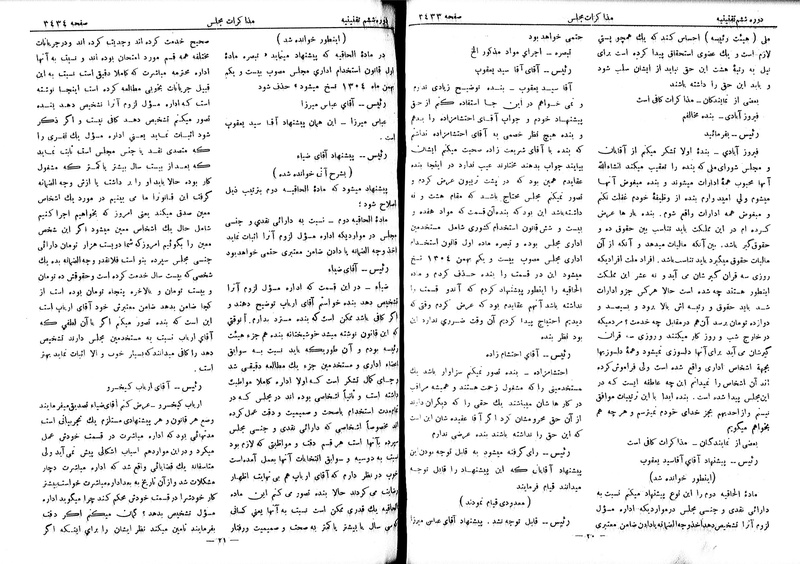 دوره ششم تقنینیه
مذاکرات مجلس
صفحه ۳۴۳۳
ملی (هیئت رئیسه) احساس کنند که یک همچو پستی
لازم است و یک عضوی استحقاق پیدا کرده است برای
نیل به رتبهٔ هشت این حق نباید از ایشان سلب شود
و باید این حق را داشته باشند
بعضی از نمایندگان ـ مذاکرات کافی است
فیروز آبادی ـ بنده مخالفم
رئیس ـ بفرمائید
فیروز آبادی ـ بندهٔ اولا تشکر میکنم از آقایان
و مجلس شورای ملی که بنده را تعقیب میکنند انشاءالله
آنها محبوب همهٔ ادارات میشوند و بنده مبغوض آنها
میشوم ولی امید وارم بنده از وظیفهٔ خودم غفلت نکنم
و مبغوض همه ادارات واقع شوم . بنده بارها عرض
کرده ام در این مملکت باید تناسب بین حقوق ده و
حقوق گیر باشد . بین آنکه مالیات میدهد و آنکه از آن
مالیات حقوق میگیرد باید تناسب باشد . افراد ملت افرادیکه
روزی سه قران گیرشان می آید و نه عشر این مملکت
اینطور هستند چه شده است حالا هرکس جزو ادارات
شد باید حقوق و رتبه اش بالا برود و بسیصد و
دوازده تومان برسد آن هم در مقابل چه خدمت؟ مردمیکه
در خارج شب و روز کار میکنند و روزی سه قران
گیرشان می آید برای آنها دلسوزی نمیشود و همهٔ دلسوزیها
بجههٔ اشخاص اداری واقع شده است ولی فراموش کرده
اند آن اشخاص را نمیدانم این چه عاطفه ایست که در
این مجلس پیدا شده است . بنده ابدا با این ترتیبات موافق
نیستم و از احدی هم بجز خدای خودم نمیترسم و هر چه هم
بخواهم میگویم
بعضی از نمایندگان ـ مذاکرات کافی است
رئیس ـ پیشنهاد آقای آقاسید یعقوب
(اینطور خوانده شد)
مادهٔ الحاقیه دوم را این نوع پیشنهاد میکنم نسبت به
دارائی نقدی و جنسی مجلس در مواردیکه اداره مسؤل
لزوم آنرا تشخیص دهد اخذ وجه الضمانه یا دادن ضامن معتبری
حتمی خواهد بود
تبصره ـ اجرای مواد مذکور الخ
رئیس ـ آقای آقا سید یعقوب
آقا سید یعقوب ـ بنده توضیح زیادی ندارم
و نمی خواهم در این جا استفاده کنم از حق
پیشنهاد خودم و جواب آقای احتشام زاده را بدهم
و بنده هیچ نظر خصمی به آقای احتشامزاده نداشتم
که بنده با آقای شریعت زاده صحبت میکنم ایشان
بیایند جواب بدهند مختارند عیب ندارد در اینجا بنده
عقایدم همین بود که در پشت تریبون عرض کردم و
تصور نمیکنم مجلس محتاج باشد که مقام هشت و نه
داشته باشد این بود که بنده آن قسمت که مواد هفده و
بیست و شش قانون استخدام کشوری شامل مستخدمین
اداری مجلس بوده و تبصره ماده اول قانون استخدام
اداری مجلس مصوب بیست و یکم بهمن ۱۳۰۴ نسخ
میشود این دو قسمت را بنده حذف کردم و ماده
الحاقیه را اینطور پیشنهاد کردم که آندو قسمت را
نداشته باشد آنهم عقایدم بود که عرض کردم وقتی که
دیدیم احتیاج پیدا کردیم آن وقت ضرری ندارد این
بود نظر بنده
رئیس ـ آقای احتشام زاده
احتشامزاده ـ بنده تصور نمیکنم سزاوار باشد یک
مستخدمینی را که مشغول زحمت هستند و همیشه مراقب
در کار ها شان میباشند یک حقی را که دیگران دارند
از آن حق محرومشان کرد اگر آقا عقیده شان این است
که این حق را نداشته باشند بنده عرضی ندارم
رئیس ـ رای گرفته میشود به قابل توجه بودن این
پیشنهاد آقایانی که این پیشنهاد را قابل توجه
میدانند قیام فرمایند
(معدودی قیام نمودند)
رئیس ـ قابل توجه نشد . پیشنهاد آقای عباس میرزا
ـ ۲۰ ـ
دوره ششم تقنینیه
مذاکرات مجلس
صفحه ۳۴۳۴
(اینطور خوانده شد)
در مادهٔ الحاقیه که پیشنهاد مینماید « تبصره مادهٔ
اول قانون استخدام اداری مجلس مصوب بیست و یکم
بهمن ماه ۱۳۰۴ نسخ میشود » حذف شود
رئیس ـ آقای عباس میرزا
عباس میرزا ـ این همان پیشنهاد آقا سید یعقوب
است .
رئیس ـ پیشنهاد آقای ضیاء
(بشرح آتی خوانده شد)
پیشنهاد میشود که مادهٔ الحاقیه دوم بترتیب ذیل
اصلاح شود ؛
مادهٔ الحاقیه دوم ـ نسبت به دارائی نقدی و جنسی
مجلس در مواردیکه اداره مسؤل لزوم آنرا اثبات نماید
اخذ وجه الضمانه یا دادن ضامن معتبری حتمی خواهد بود
رئیس ـ آقای ضیاء
ضیاء ـ در این قسمت که اداره مسؤل لزوم آنرا
تشخیص دهد بنده خواستم آقای ارباب توضیح دهند و
اگر کافی باشد ممکن است که بنده مسترد بدارم . آنوقتی
که این قانون نوشته میشد خوشبختانه بنده هم جزء هیئت
رئیسه بودم و آن طوریکه باید نسبت به سوابق
اعضاء اداری و مستخدمین جزء یک مطالعهٔ دقیقی شد
و جای کمال تشکر است که اولا اداره کاملا مواظبت
داشته است و ثانیاً اشخاصی بوده اند در مجلس که در
تمام مدت استخدام باصحت و صمیمیت و دقت عمل کرده
اند مخصوصاً اشخاصی که دارائی نقدی و جنسی مجلس
سپرده به آنها است هر قسم دقت و مواظبتی که لازم بود
نسبت به دوسیه و سوابق انتخابات آنها بعمل آمده است
خوب در نظر دارم که آقای ارباب هم بی نهایت اظهار
رضایت می کردند حالا بنده تصور می کنم این ماده
الحاقیه یک قدری ممکن است نسبت به آنها یعنی کسانی
که سی سال یا بیشتر یا کمتر به صحت و صمیمیت ورفتار
صحیح خدمت کرده اند وجدیت کرده اند ودرجریانات
مختلفه همه قسم مورد امتحان بوده اند و نسبت به آنها
اداره محترمه مباشرت که کاملا دقیق است نسبت به این
قبیل جریانات بخوبی مطالعه کرده است اینجا نوشته
است که اداره مسؤل لزوم آنرا تشخیص دهد بنده
تصور میکنم تشخیص دهد کافی نیست و اگر ذکر
شود اثبات نماید یعنی اداره مسؤل یک نفری را
که متصدی نقد یا جنس مجلس است ثابت نماید
که بعد از بیست سال بیشتر یا کمتر که مشغول
کار بوده حالا باید او را بر داشت یا ازش وجه الضمانه
گرفت این قانونرا ما می بینیم در مورد یک اشخاص
معین صدق میکند یعنی امروز که بخواهیم اجرا کنیم
شامل حال یک اشخاص معین میشود اگر این شخص
معین را بگوئیم امروز که شما دویست هزار تومان دارائی
جنسی مجلس سپرده بتو است فلانقدر وجه الضمانه بده یک
شخصی که بیست سال خدمت کرده است وحقوقش ده تومان
و بیست تومان و بالاخره پنجاه تومان بوده است از
کجا ضامن بدهد ضامن معتبرش خود آقای ارباب است
این است که بنده تصور میکنم اگر با آن لطفی که
آقای ارباب نسبت به مستخدمین مجلس دارند تشخیص
دهد را کافی میدانند که بسیار خوب و الا اثبات نماید بهتر
است .
رئیس ـ آقای ارباب کیخسرو
ارباب کیخسرو ـ عرض کنم آقای ضیاء تصدیق میفرمایند
وضع هر قانون و هر پیشنهادی مستلزم یک تجربیاتی است
مدتهائی بود که اداره مباشرت در قسمت خودش عمل
میکرد و در این مواردهم اسباب اشکالی پیش نمی آید ولی
متاسفانه یک قضایائی واقع شد که اداره مباشرت دچار
مشکلات شد و از آن تاریخ به بعد اداره مباشرت خواست بیشتر
کار خودش را در قسمت خودش محکم کند چرا میگوید اداره
مسؤل تشخیص بدهد ؟ گمان میکنم اگر دقت
بفرمایند تامین میکند نظر ایشان را برای اینکه اگر
ـ ۲۱ ـ